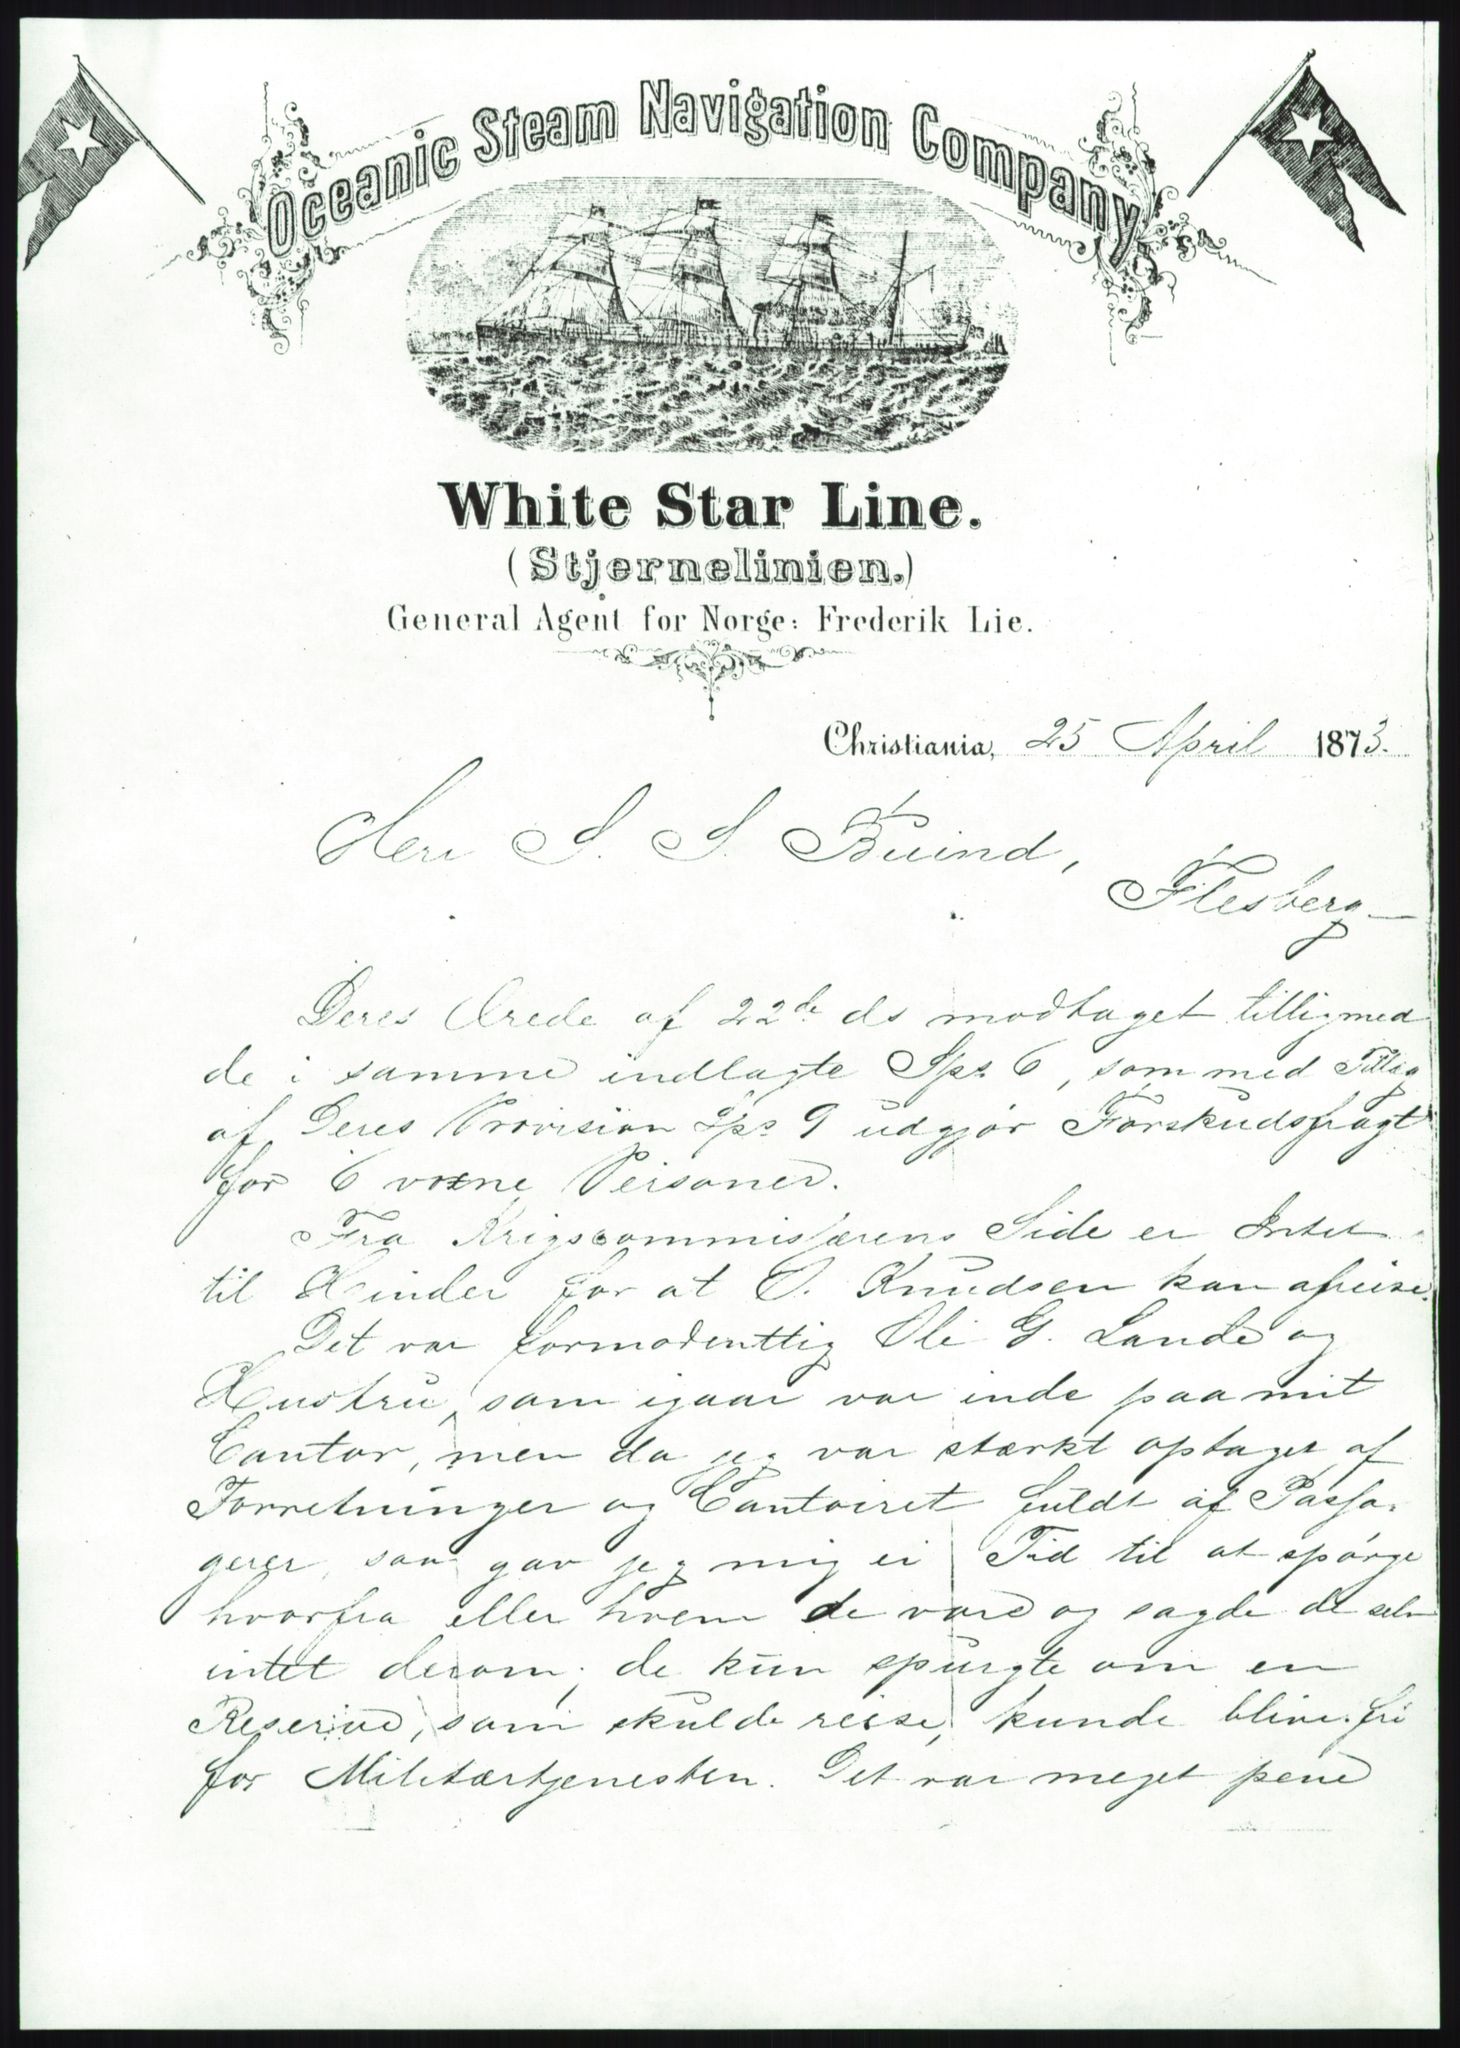 Oceanic Steam Navigation Company
White Star Line.
(Stjernelinien.)
General Agent for Norge: Frederik Lie.
Christiania, 25 April 1873.
Herr S. S. Buind,
Flesberg
Deres Ærede af 22de ds modtaget tilligmed
de i samme indlagte Sps 6, som med Tillæg
af Deres Provision Sps 9 udgjør Forskudsfragt
for 6 voxne Personer.
Fra Krigscommisærens Side er Intet
til Hinder for at O. Knudsen kan afreise.
Det var formodentlig Ole G. Lande og
Hustru, som igaar var inde paa mit
Contor, men da jeg var stærkt optaget af
Forretninger og Contoiret fuldt af Passa-
gerer, saa gav jeg mig ei Tid til at spørge
hvorfra eller hvem de vare og sagde de selv
intet derom; de kun spurgte om en
Reserive, som skulde reise, kunde blive fri
for Militærtjenesten. Det var meget pene